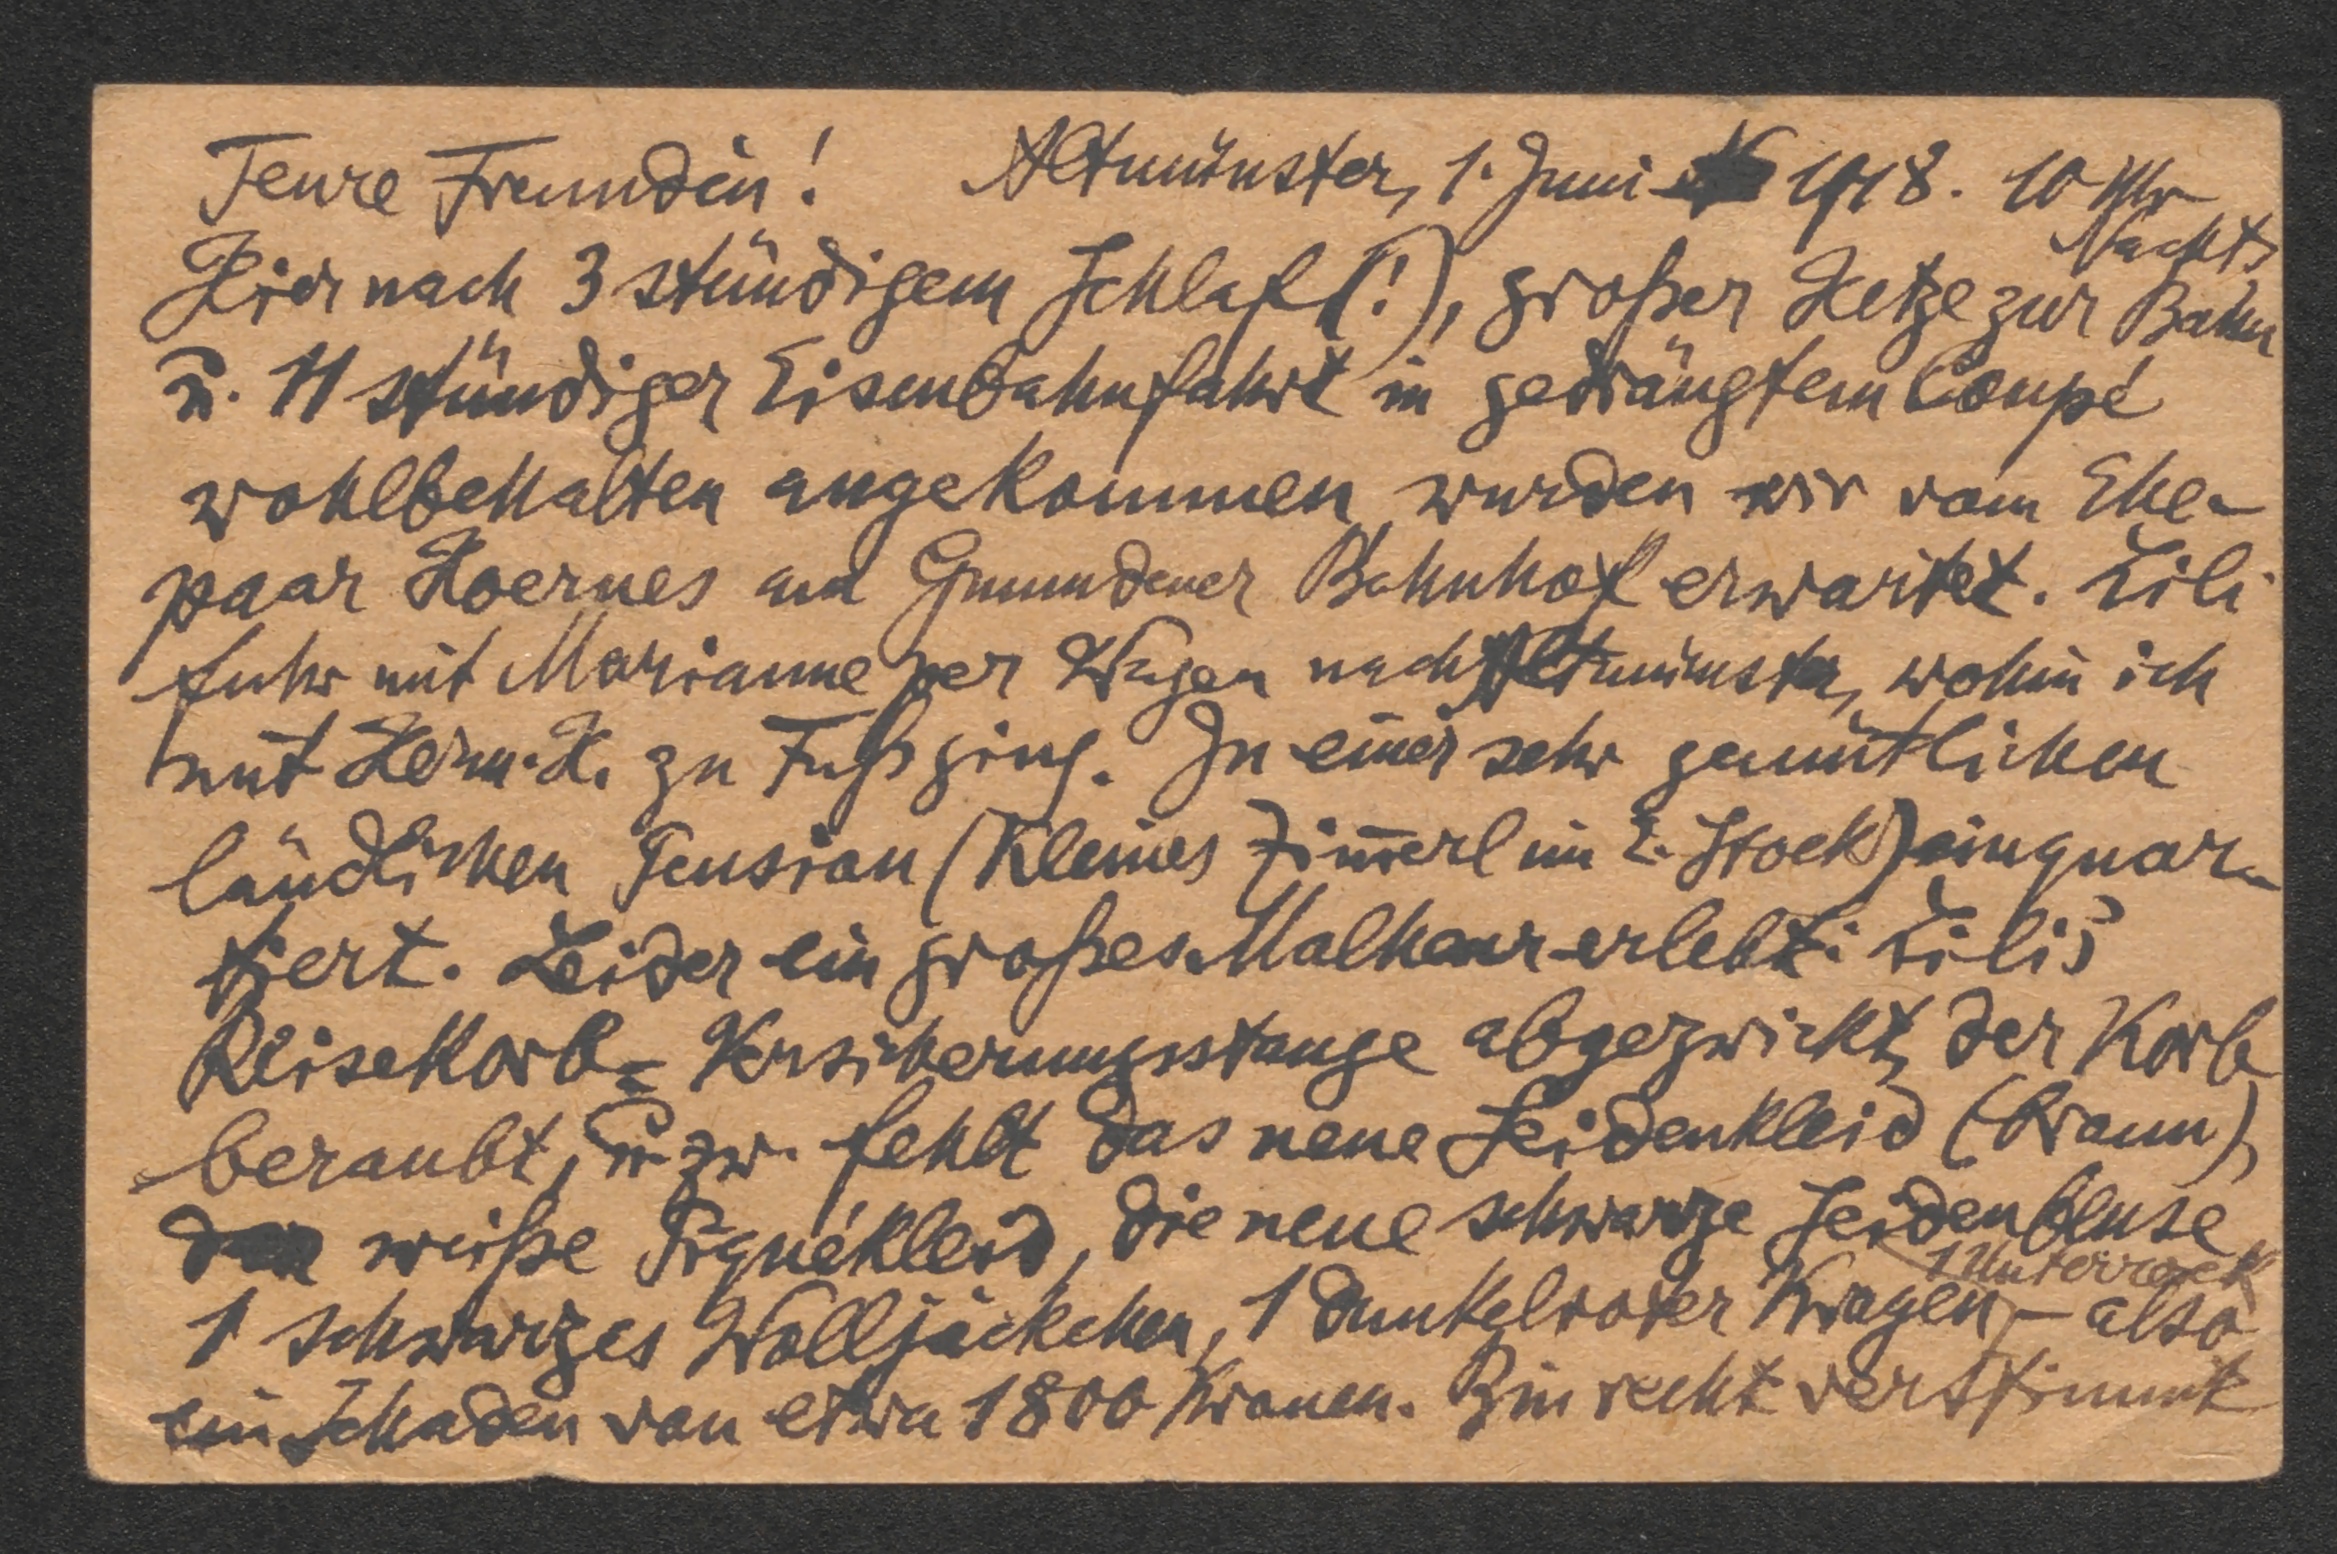 Teure Freundin! Altmünster, 1. Juni 1918. 10 Uhr
Nachts
Hier nach 3 stündigem Schlaf (!), großer Hetze zur Bahn
u. 11 stündiger Eisenbahnfahrt in gedrängtem Coupé
wohlbehalten angekommen, wurden wir vom Ehe-
paar Hoernes am Gmundener Bahnhof erwartet. Lili
fuhr mit Marianne per Wagen nach Altmünster, wohin ich
mit Herrn H. zu Fuß ging. In einer sehr gemütlichen
ländlichen Pension (kleines Zim̅erl im 2. Stock) einquar-
tiert. Leider ein großes Malheur erlebt: Lilis
Reisekorb-Versicherungsstange abgezwickt, der Korb
beraubt, u. zw. fehlt das neue Seidenkleid (braun),
das weiße Piquékleid, die neue schwarze Seidenbluse
1 Unterrock
1 schwarzes Walljäckchen, 1 dunkelroter Kragen, - also
ein Schaden von etwa 1800 Kronen. Bin recht verstimmt